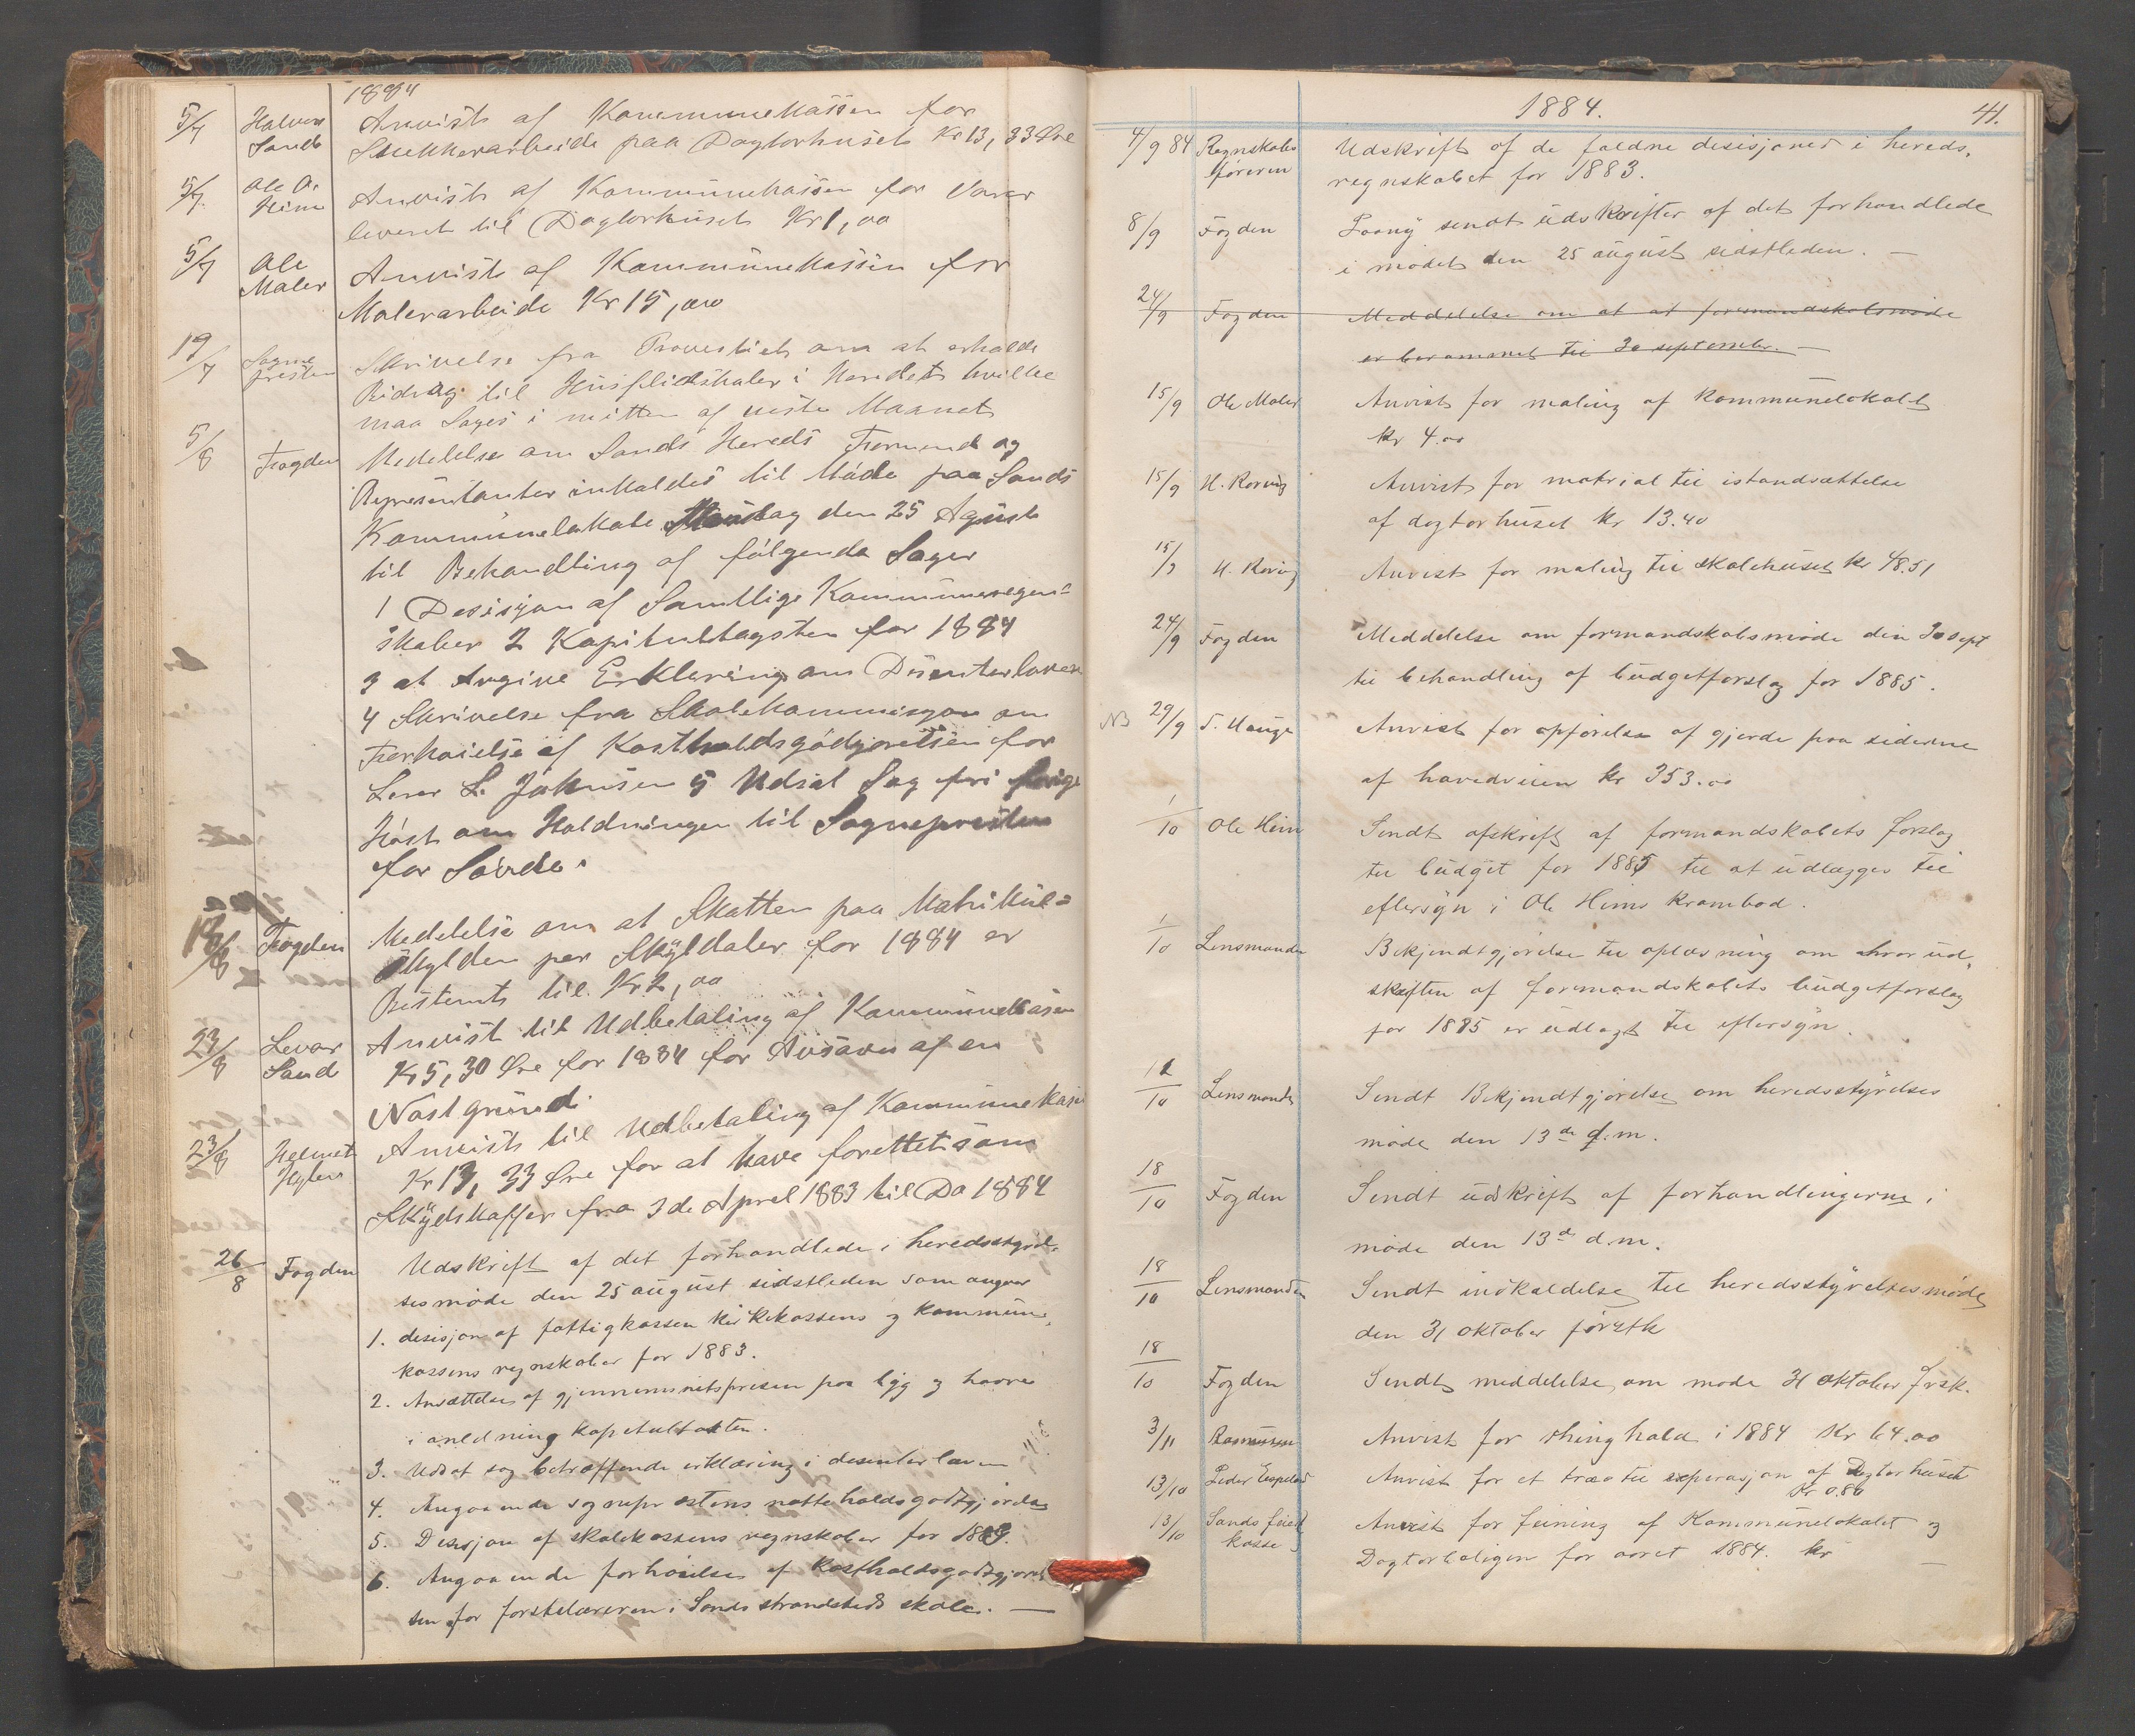 1884
5/7 Halvor Anvist af Kommunekassen for
Sande Snekkerarbeide paa Dogtorhuset Kr 13,33 Øre
5/7 Ole O. Anvist af Kommunekassen for Varer
Heim leveret til Dogtorhuset Kr 1,00
5/7 Ole Anvist af Kommunekassen for
Maler Malerarbeide Kr 15,00
19/7 Sogne Skrivelse fra Provestiet om at erholde
presten Bidrag til Husflidskoler i Heredet hvilke
maa Søges i mitten af neste Maanet
5/8 Fogden Medelelse om Sands Hereds Formend og
Representanter inkaldes til Møde paa Sands
Kommunelokale Mandag den 25 Agust
til Behandling af følgende Sager
1 Desisjon af Samtlige Kommuneregen=
skaber 2 Kapitultagsten for 1884
3 at Avgive Erklering om Disenterloven
4 Skrivelse fra Skolekommisjon om
Forhøielse af Kostholdsgodgjørelsen for
Lerer L. Johnsen 5 Udsat Sag fri forige
Høst om Holdningen til Sognepresten
for Søvde.
18/8 Fogden Medelelse om at Skatten paa Matrikul=
Skylden per Skyldaler for 1884 er
Bestemt til Kr 2,00
23/8 Levar Anvist til Udbetaling af Kommunekasen
Sand Kr 5,30 Øre for 1884 for Avsavn af en
Nøstgrund.
23/8 Helmet Anvist til Udbetaling af Kommunekasen
Kr 13,33 Øre for at have forettet som
Skydskaffer fra 3de Aprel 1883 til Do 1884
26/8 Fogden Udskrift af det forhandlede i heredsstyrel.
sesmøde den 25 august sidstleden som angaar
1. desisjon af fattigkassen kirkekassens og kommune.
kassens regnskaber for 1883.
2. Ansættelse af gjennemsnitsprisen paa byg og havre
i anledning kapitultaksten.
3. Udsat sag betræffende erklæring i desenterloven
4. Angaaende sogneprestens natteholdsgodtgjørelse
5. Desisjon af skolekassens regnskaber for 1883.
6. Angaaende forhøielse af kostholdsgodtgjørel
sen for førstelæreren i Sands strandsteds skole. —
1884. 41.
4/9 84 Regnskabs Udskrift af de faldne desisjoner i hereds.
føreren regnskabet for 1883.
8/9 Fogden Paany sendt udskrifter af det forhandlede
i mødet den 25 august sidstleden. —
24/9 Fogden Meddelelse om at at formandskabsmøde
er berammet til 30 september. —
15/9 Ole Maler Anvist for maling af kommunelokalet
kr 4.00
15/9 H. Roring Anvist for matrial til istandsættelse
af dogtorhuset kr 13.40
15/9 H. Roring Anvist for maling til skolehuset kr 48.51
24/9 Fogden Meddelelse om formandskabsmøde den 30 sept
til behandling af budgetforslag for 1885.
NB 29/9 T. Hauge Anvist for opførelse af gjerde paa siderne
af hovedveien kr 353.00
1/10 Ole Heim Sendt afskrift af formandskabets forslag
til budget for 1885 til at udlægges til
eftersyn i Ole Heims krambod.
1/10 Lensmanden Bekjendtgjørelse til oplæsning om hvor ud.
skriften af formandskabets budgetforslag
for 1885 er udlagt til eftersyn.
12/10 Lensmanden Sendt Bekjendtgjørelse om heredsstyrelses
møde den 13de d.m.
18/10 Fogden Sendt udskrift af forhandlingerne i
møde den 13de d.m.
18/10 Lensmanden Sendt indkaldelse til heredsstyrelsesmøde
den 31 oktober førstk
18/10 Fogden Sendt meddelelse om møde 31 oktober frstk.
3/11 Rasmussen Anvist for thinghold i 1884 Kr 64.00
13/10 Peder Espeland Anvist for et træ til reperasjon af Dogtorhuset
Kr 0.80
13/10 Sands feier Anvist for feining af Kommunelokalet og
kasse Dogtorboligen for aaret 1884. kr —